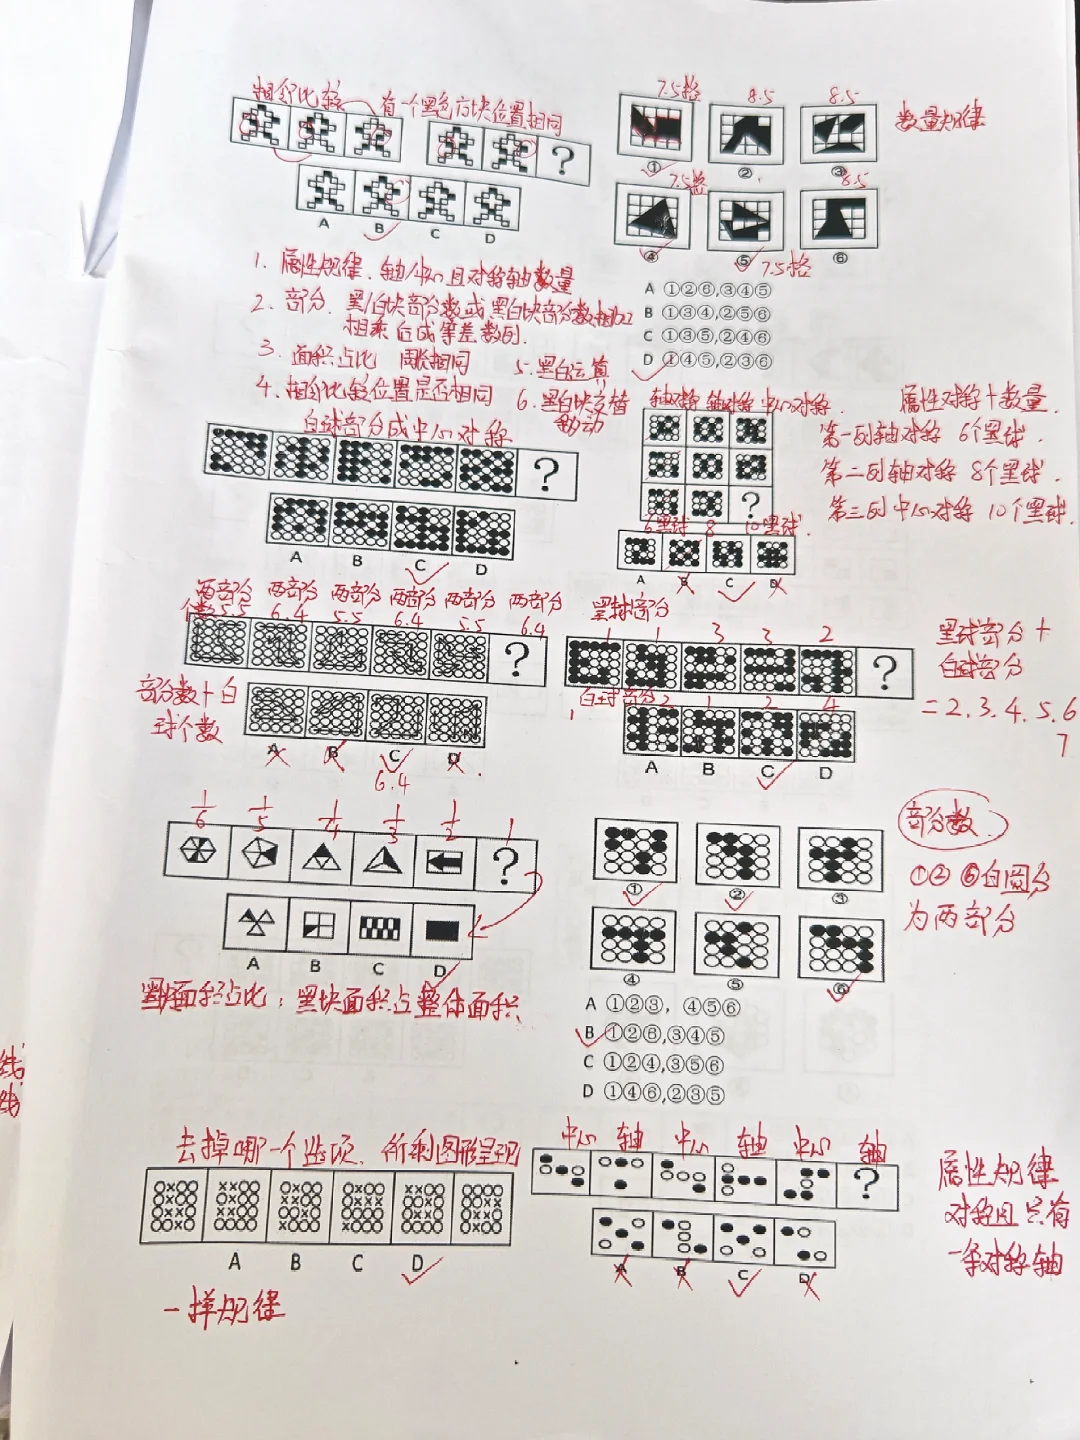 相邻比较 有一个黑色方块位置相同
?
A B C D
7.5格 8.5 8.5
① ② ③
7.5格 8.5
④ ⑤ ⑥
7.5格
数量规律
A ①②⑥,③④⑤
B ①③④,②⑤⑥
C ①③⑤,②④⑥
D ①④⑤,②③⑥
1. 属性规律.轴/中心且对称轴数量
2. 部分.黑/白块部分数或黑白块部分数相加
相乘后成等差数列.
3. 面积占比 周长相同
4. 相邻比较位置是否相同
5. 黑白运算
6. 黑白块交替
移动
白球部分成中心对称
?
A B C D
轴对称 轴对称 中心对称.
?
6黑球 8 10黑球.
A B C D
属性对称+数量.
第一列轴对称 6个黑球.
第二列轴对称 8个黑球.
第三列中心对称 10个黑球.
两部分 两部分 两部分 两部分 两部分 两部分
个数5.5 6.4 5.5 6.4 5.5 6.4
?
部分数+白
球个数
A B C D
6.4
黑球部分
1 1 3 3 2
?
白球部分
1 2 1 2 4
A B C D
黑球部分+
白球部分
=2.3.4.5.6
7
1/6 1/5 1/4 1/3 1/2 1
?
A B C D
黑块面积占比:黑块面积占整体面积
① ② ③
④ ⑤ ⑥
部分数.
①②⑥白圆分
为两部分
A ①②③, ④⑤⑥
B ①②⑥,③④⑤
C ①②④,③⑤⑥
D ①④⑥,②③⑤
去掉哪一个选项.所剩图形呈现
A B C D
一样规律
中心 轴 中心 轴 中心 轴
?
A B C D
属性规律
对称且只有
一条对称轴
线
线